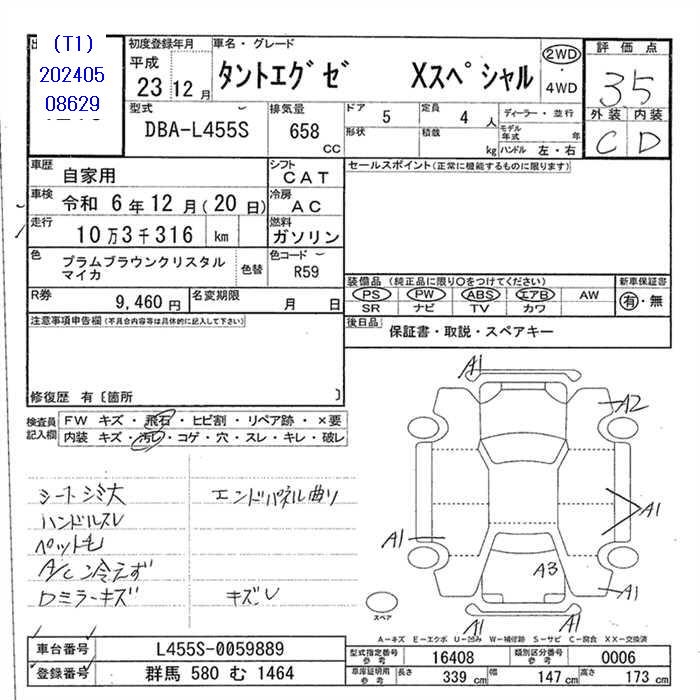 (T1)
202405
08629
初度登録年月
平成
23 12 月
車名・グレード
タントエグゼ Xスペシャル
2WD
4WD
評価点
35
外装 内装
C D
型式
DBA-L455S
排気量
658
CC
ドア
5
形状
定員
4 人
積載
kg
ディーラー・並行
モデル年式 年
ハンドル 左・右
車歴
自家用
シフト
CAT
車検
令和 6年12月(20日)
冷房
AC
走行
10万3千316 km
燃料
ガソリン
色
プラムブラウンクリスタル
マイカ
色替
色コード
R59
R券
9,460 円
名変期限
月 日
セールスポイント(正常に機能するものに限ります)
装備品 (純正品に限り○をつけてください)
PS PW ABS エアB AW
SR ナビ TV カワ
新車保証書
有・無
後日品
保証書・取説・スペアキー
注意事項申告欄(不具合内容等は具体的に記入して下さい)
修復歴 有〔箇所 〕
検査員
記入欄
FW キズ・飛石・ヒビ割・リペア跡・×要
内装 キズ・汚レ・コゲ・穴・スレ・キレ・破レ
シートシミ大
ハンドルスレ
ペット毛
A/C冷えず
ロミラーキズ
エンドパネル曲リ
キズU
A1
A2
A1
A1
A3
A1
A1
A1
スペア
A-キズ E-エクボ U-凹み W-補修跡 S-サビ C-腐食 XX-交換済
車台番号
L455S-0059889
登録番号
群馬 580 む 1464
型式指定番号
参考
16408
類別区分番号
参考
0006
車庫証明用
参考
長さ
339 cm
幅
147 cm
高さ
173 cm